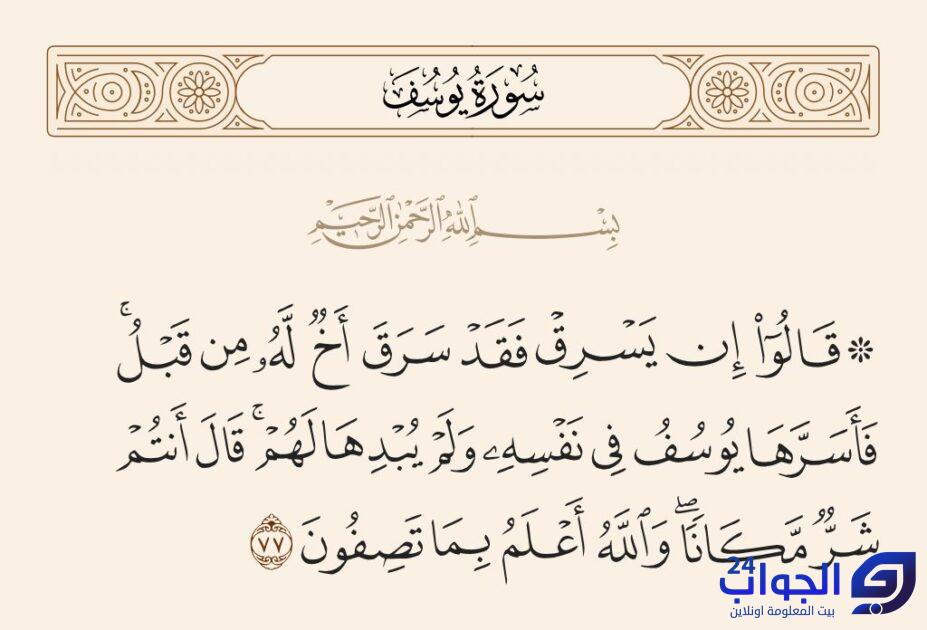 سُورَةُ يُوسُفَ
بِسْمِ ٱللَّهِ ٱلرَّحْمَٰنِ ٱلرَّحِيمِ
۞ قَالُوٓا۟ إِن يَسْرِقْ فَقَدْ سَرَقَ أَخٌ لَّهُۥ مِن قَبْلُ ۚ
فَأَسَرَّهَا يُوسُفُ فِى نَفْسِهِۦ وَلَمْ يُبْدِهَا لَهُمْ ۚ قَالَ أَنتُمْ
شَرٌّ مَّكَانًا ۖ وَٱللَّهُ أَعْلَمُ بِمَا تَصِفُونَ ٧٧
الجواب 24
بيت المعلومة اونلاين